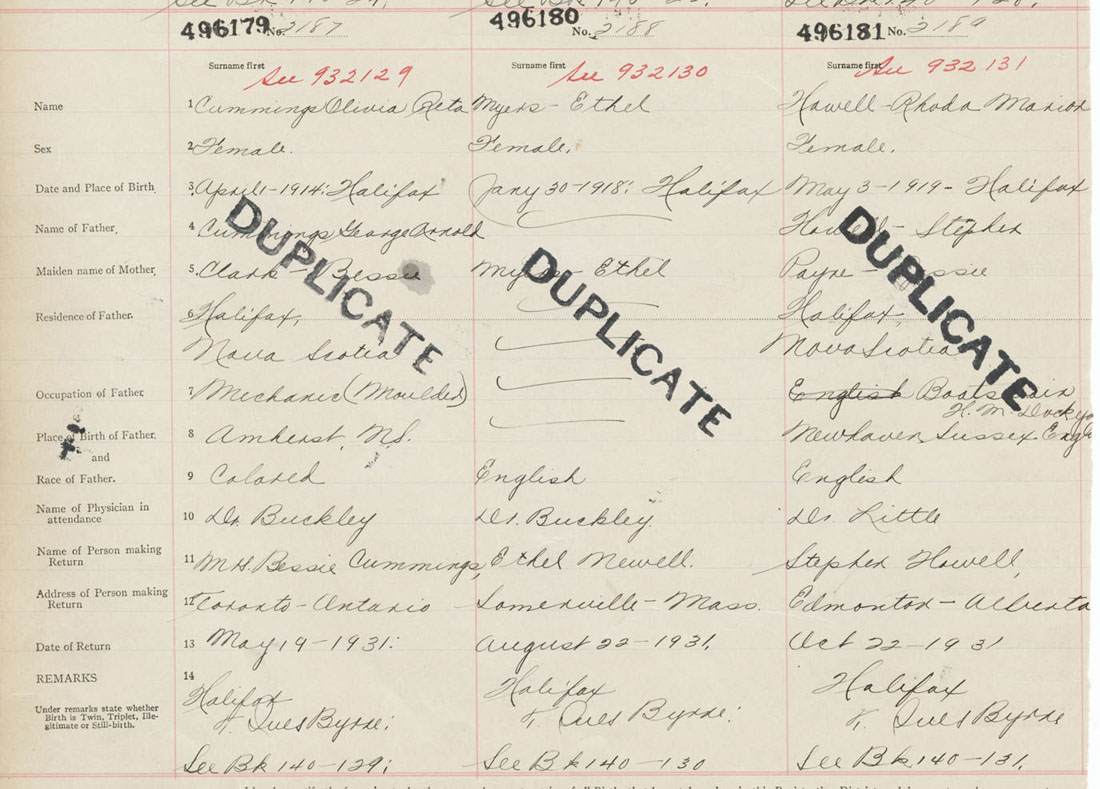 496179 No. 2187 496180 No. 2188 496181 No. 2189
Surname first Surname first Surname first
See 932129 See 932130 See 932131
Name 1 Cummings Olivia Reta Myers - Ethel Howell - Rhoda Marion
Sex 2 Female. Female. Female.
Date and Place of Birth 3 April 1 - 1914: Halifax Jany 30 - 1918: Halifax May 3 - 1919 - Halifax
Name of Father 4 Cummings George Arnold Howell - Stephen
Maiden name of Mother 5 Clark - Bessie Myers - Ethel Payne - Bessie
Residence of Father. 6 Halifax, Halifax,
Nova Scotia Nova Scotia
Occupation of Father 7 Mechanic (Moulded) English Boatswain
H. M. Dockya
Place of Birth of Father. 8 Amherst, N.S. Newhaven Sussex Engl
and
Race of Father. 9 Colored English English
Name of Physician in
attendance 10 Dr. Buckley Dr. Buckley. Dr. Little
Name of Person making
Return 11 Bessie Cummings, Ethel Newell. Stephen Howell,
Address of Person making
Return 12 Toronto - Ontario Somerville - Mass. Edmonton - Alberta
Date of Return 13 May 19 - 1931. August 22 - 1931. Oct 22 - 1931
REMARKS 14
Halifax Halifax Halifax
Under remarks state whether
Birth is Twin, Triplet, Ille-
gitimate or Still-birth.
Ives Byrne. Ives Byrne. Ives Byrne
See Bk 140 - 129. See Bk 140 - 130 See Bk 140 - 131.
DUPLICATE
DUPLICATE
DUPLICATE